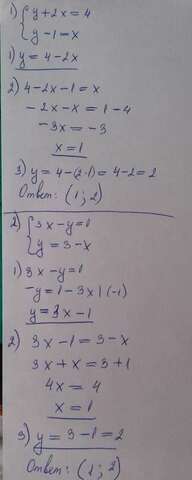 1) { y + 2x = 4
y - 1 = x
1) y = 4 - 2x
2) 4 - 2x - 1 = x
- 2x - x = 1 - 4
- 3x = - 3
x = 1
3) y = 4 - (2·1) = 4 - 2 = 2
Ответ: (1; 2)
2) { 3x - y = 1
y = 3 - x
1) 3x - y = 1
-y = 1 - 3x | (-1)
y = 3x - 1
2) 3x - 1 = 3 - x
3x + x = 3 + 1
4x = 4
x = 1
3) y = 3 - 1 = 2
Ответ: (1; 2)